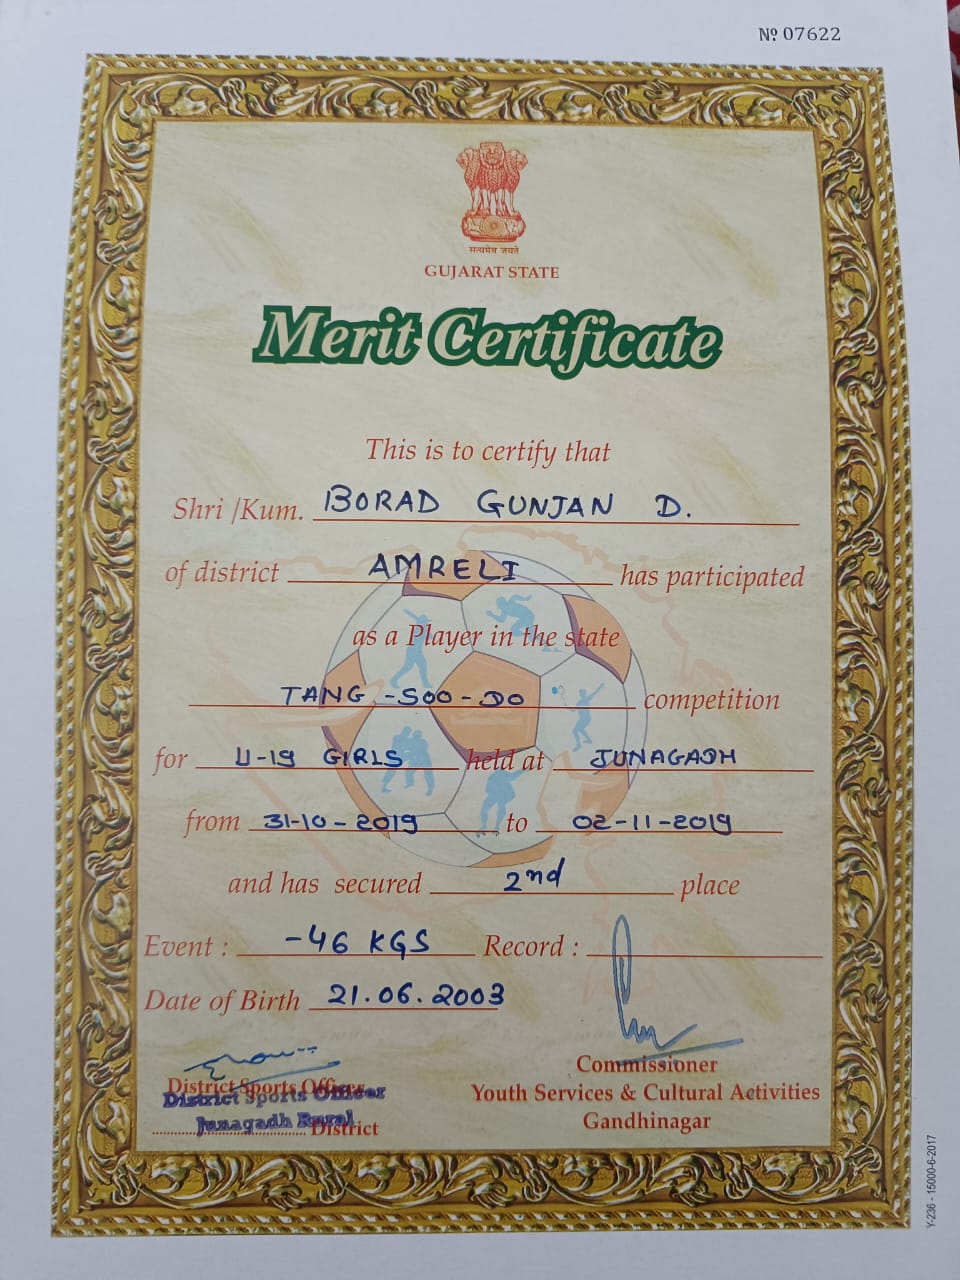 № 07622
सत्यमेव जयते
GUJARAT STATE
Merit Certificate
This is to certify that
Shri /Kum. BORAD GUNJAN D.
of district AMRELI has participated
as a Player in the state
TANG -SOO-DO competition
for U-19 GIRLS held at JUNAGADH
from 31-10-2019 to 02-11-2019
and has secured 2nd place
Event : -46 KGS Record :
Date of Birth 21.06.2003
District Sports Officer
District Sports Officer
Junagadh Rural
District
Commissioner
Youth Services & Cultural Activities
Gandhinagar
Y-236 - 15000-6-2017